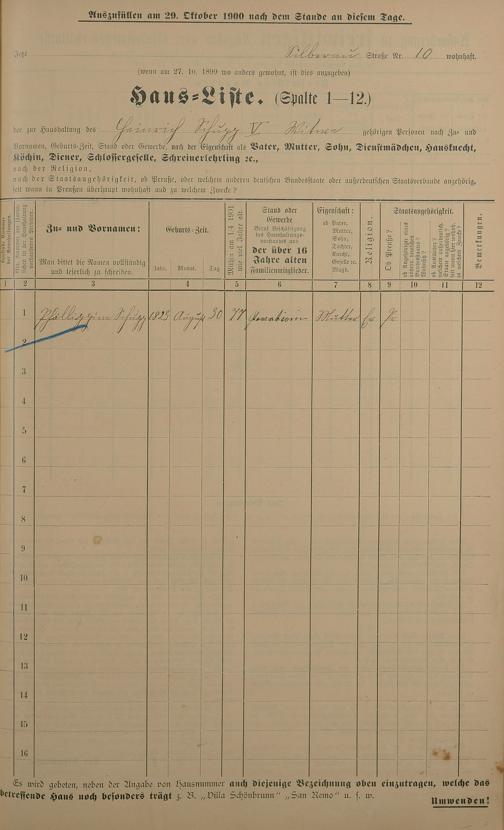 Auszufüllen am 29. Oktober 1900 nach dem Stande an diesem Tage.
Jetzt Silberau Straße Nr. 10 wohnhaft.
(wenn am 27. 10. 1899 wo anders gewohnt, ist dies anzugeben)
Haus-Liste. (Spalte 1—12.)
der zur Haushaltung des Heinrich Schupp V. Witwe gehörigen Personen nach Zu- und
Vornamen, Geburts-Zeit, Stand oder Gewerbe, nach der Eigenschaft als Vater, Mutter, Sohn, Dienstmädchen, Hausknecht,
Köchin, Diener, Schlossergeselle, Schreinerlehrling ꝛc.,
nach der Religion,
nach der Staatsangehörigkeit, ob Preuße, oder welchem anderen deutschen Bundesstaate oder außerdeutschen Staatsverbande angehörig,
seit wann in Preußen überhaupt wohnhaft und zu welchem Zwecke?
Zu- und Vornamen:
Man bittet die Namen vollständig
und leserlich zu schreiben.
Geburts-Zeit.
Jahr. Monat. Tag
Mithin am 1.4. 1901
wie viel Jahre alt.
Stand oder
Gewerbe
der über 16
Jahre alten
Familienmitglieder.
Eigenschaft:
ob Vater,
Mutter,
Sohn,
Tochter,
Knecht,
Geselle od.
Magd.
Religion.
Staatsangehörigkeit.
Ob Preuße?
Bemerkungen.
1 2 3 4 5 6 7 8 9 10 11 12
1 Schupp 1823 August 30 77 Mutter Ev Pr
2
3
4
5
6
7
8
9
10
11
12
13
14
15
16
Es wird gebeten, neben der Angabe von Hausnummer auch diejenige Bezeichnung oben einzutragen, welche das
betreffende Haus noch besonders trägt z. B. „Villa Schönbrunn" „San Remo" u. s. w.
Umwenden!